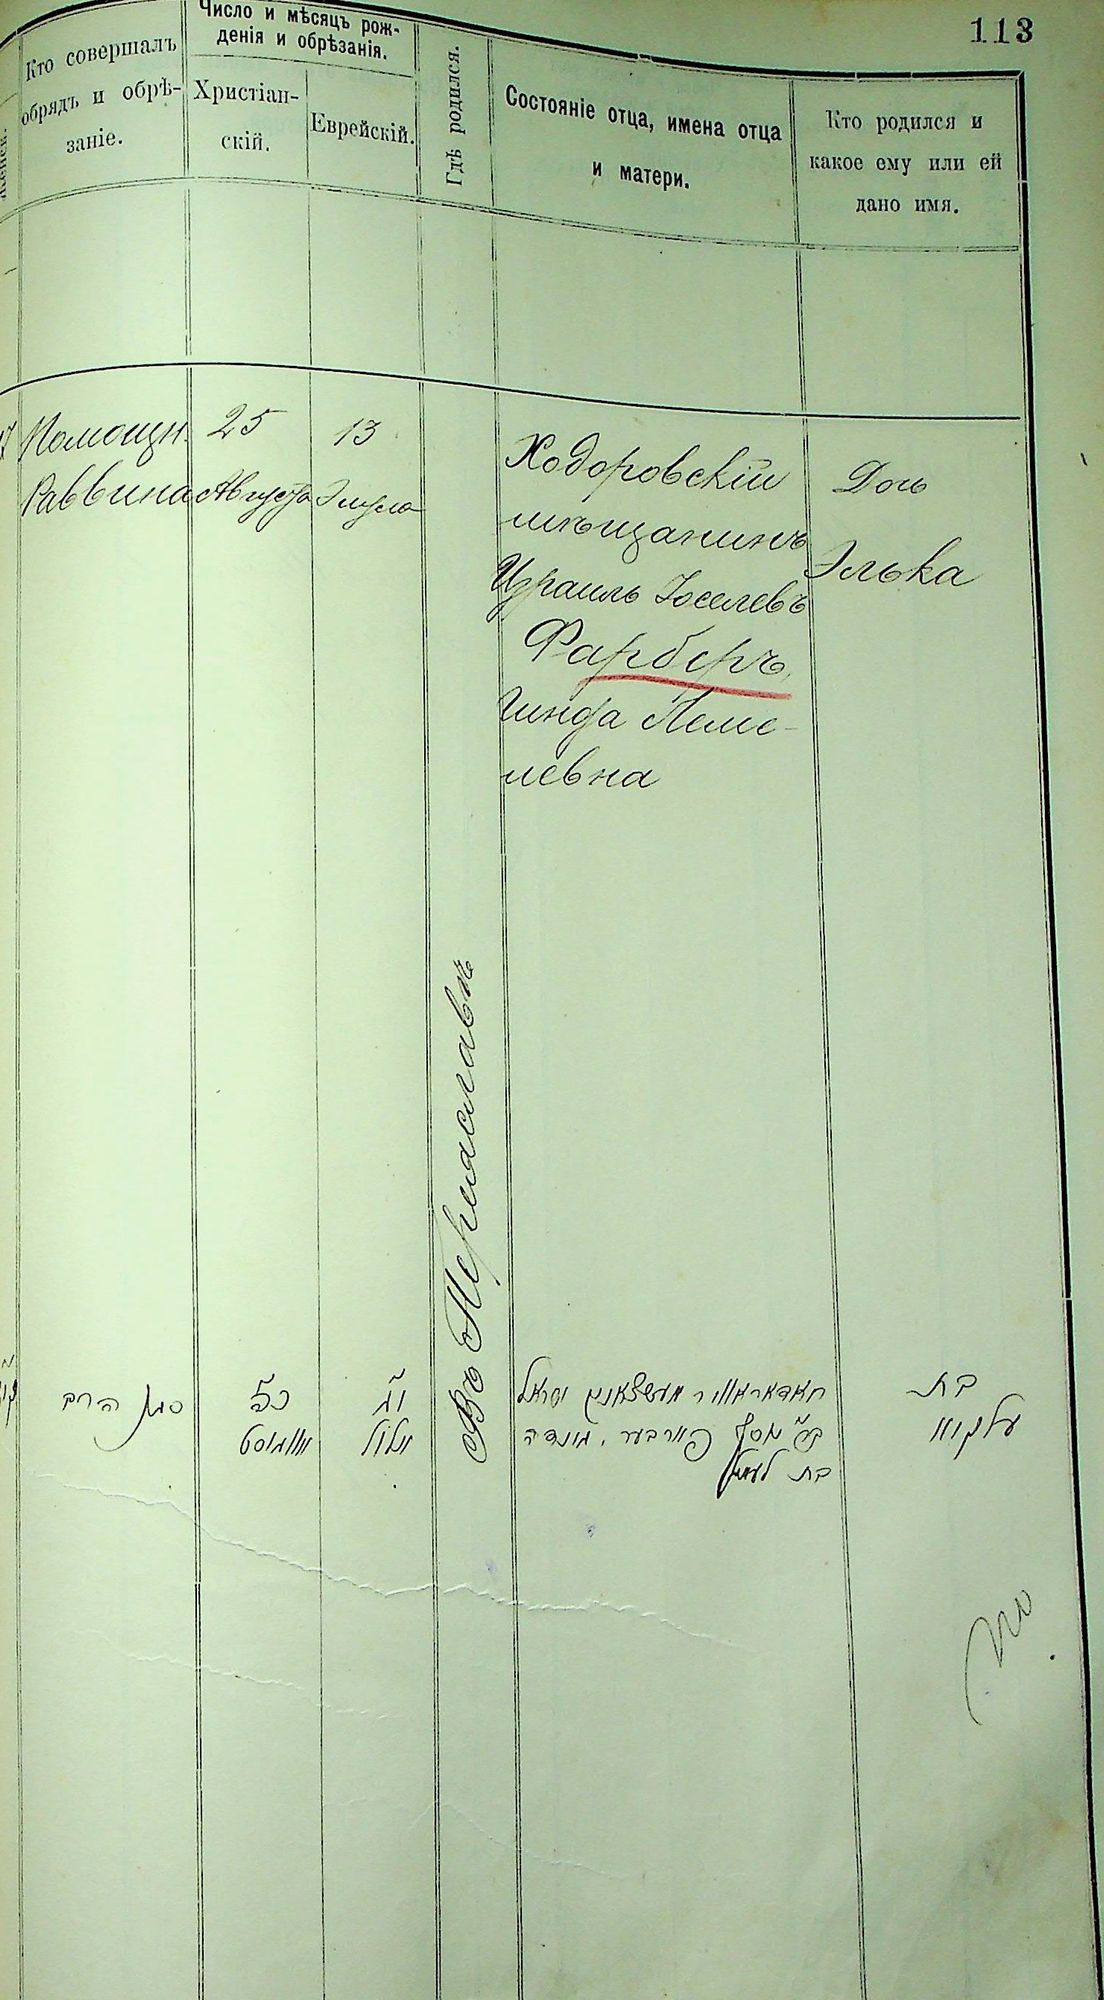 113
Кто совершалъ
обрядъ и обрѣ-
заніе.
Число и мѣсяцъ рож-
денія и обрѣзанія.
Христіан-
скій.
Еврейскій.
Гдѣ родился.
Состояніе отца, имена отца
и матери.
Кто родился и
какое ему или ей
дано имя.
Помощн.
Раввина
25
Августа
13
Элула
Въ Переяславѣ
Ходоровскій
мѣщанинъ
Израиль Іоселевъ
Фарберъ,
Гинда Леме-
левна
Дочь
Элька
סגן הרב
כ״ה
אווגוסט
י״ג
אלול
ישראל
פארבער, הינדה
בת
בת
עלקא